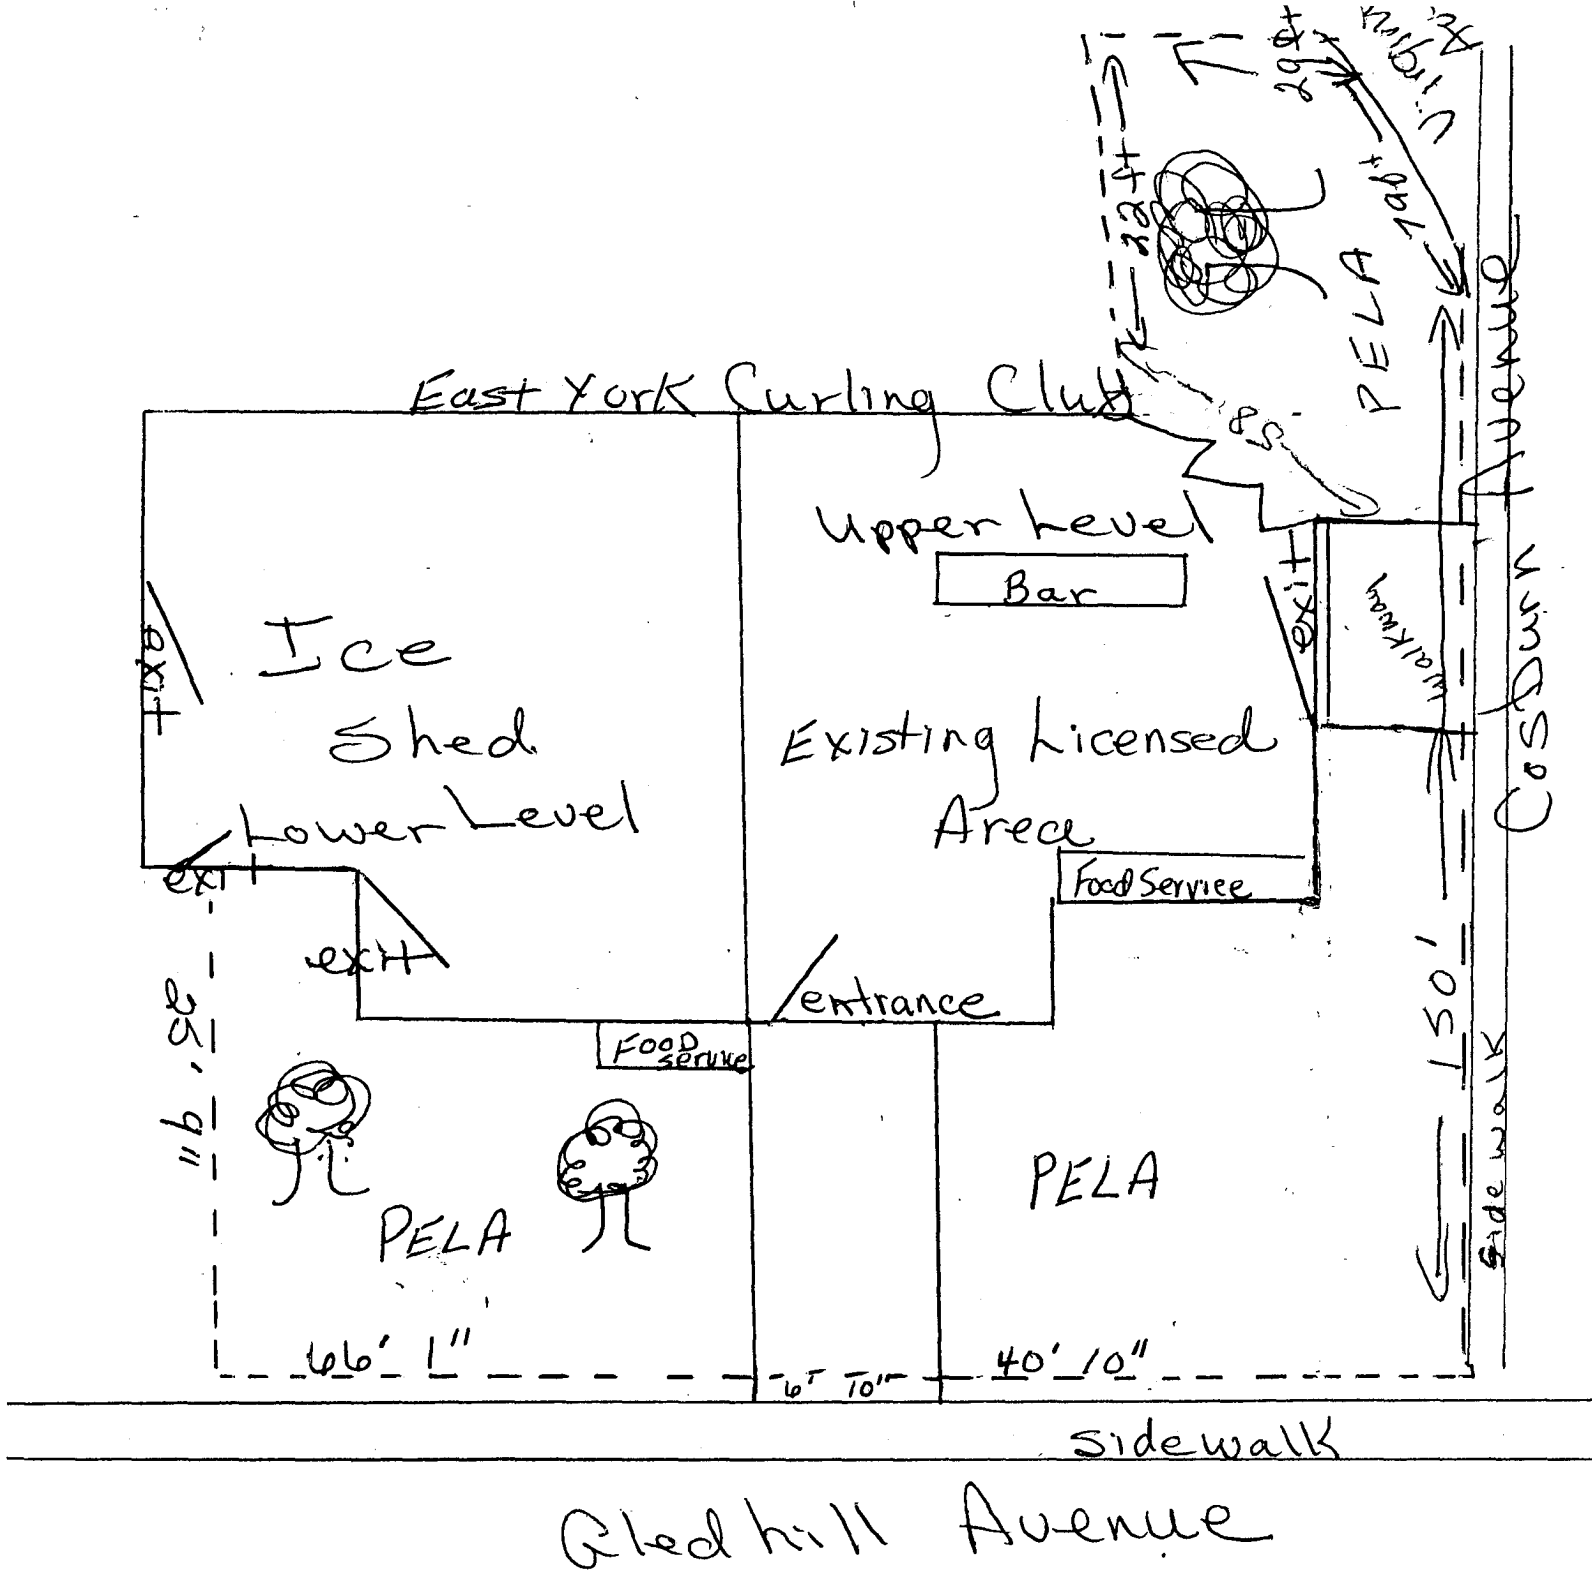 29ft
22ft
79ft
PELA
East York Curling Club
58
Upper Level
Bar
exit
Walkway
Cosburn Avenue
exit
Ice
Shed
Lower Level
Existing Licensed
Area
Food Service
exit
exit
entrance
FOOD
service
25' 9"
150'
sidewalk
PELA
PELA
66' 1"
6' 10"
40' 10"
sidewalk
Gledhill Avenue